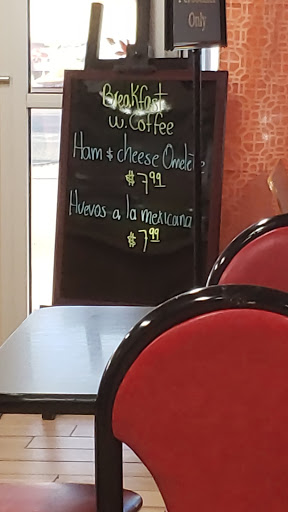 Only
Breakfast
w. Coffee
Ham & cheese Omelete
$7.99
Huevos a la mexicana
$7.99